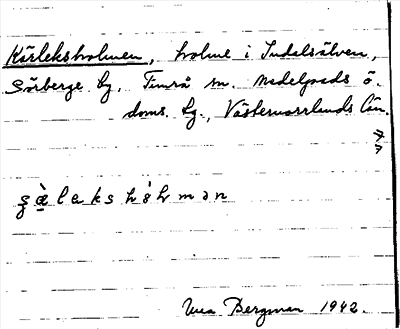 Kärleksholmen, holme i Indalsälven,
Sörberge by, Timrå sn. Medelpads ö.
doms. tg., Västernorrlands län.
Wea Bergman 1942.